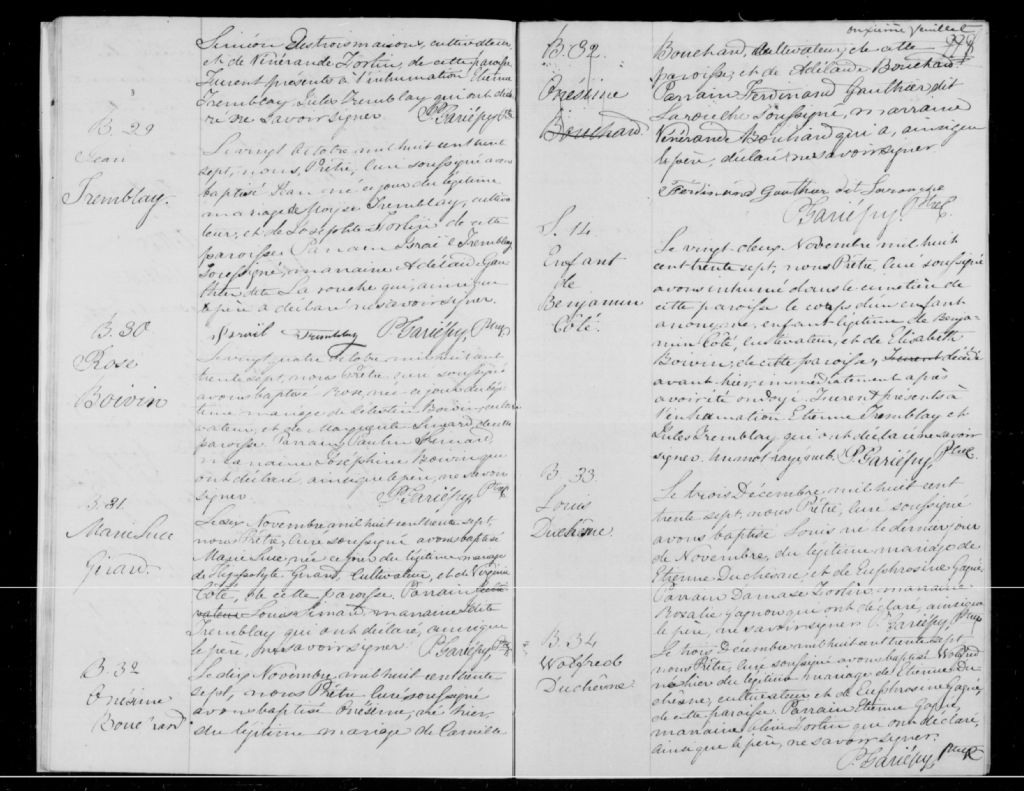 Siméon Destroismaisons, cultivateur,
et de Vénérande Fortin, de cette paroisse
Furent présents à l'inhumation Etienne
Tremblay, Jules Tremblay qui ont décla
ré ne savoir signer. P. Gariépy, Ptre
B. 29
Jean
Tremblay.
Le vingt Octobre mil huit cent trente
sept, nous, Prêtre, Curé soussigné avons
baptisé Jean né ce jour du légitime
mariage de Moyse Tremblay, cultiva
teur, et de Josephte Fortin de cette
paroisse Parrain Israël Tremblay
soussigné, marraine Adélaïde Gau
thier dite Larouche qui, ainsi que
le père a déclaré ne savoir signer.
Israël Tremblay P. Gariépy, Ptre
B. 30
Rose
Boivin
Le vingt quatre Octobre mil huit cent
trente sept, nous Prêtre Curé soussigné
avons baptisé Rose, née ce jour du légi
time mariage de Célestin Boivin, culti
vateur, et de Marguerite Simard, de cette
paroisse. Parrain Paulin Simard
marraine Joséphine Boivin qui
ont déclaré, ainsi que le père, ne savoir
signer. P. Gariépy, Ptre
B. 31.
Marie Luce
Girard.
Le six Novembre mil huit cent trente sept,
nous Prêtre, Curé soussigné avons baptisé
Marie Luce, née ce jour du légitime mariage
de Hippolyte Girard, Cultivateur, et de Virginie
Côté, de cette paroisse. Parrain culti
vateur Louis Simard, marraine
Tremblay qui ont déclaré, ainsi que
le père, ne savoir signer. P. Gariépy, Ptre
B. 32
Onésime
Bouchard
Le dix Novembre mil huit cent trente
sept, nous Prêtre Curé soussigné
avons baptisé Onésime, né hier,
du légitime mariage de Camille
onzième feuillet
B. 32
Onésime
Bouchard
Bouchard, Cultivateur, de cette
paroisse, et de Adélaïde Bouchard
Parrain Ferdinand Gauthier dit
Larouche Soussigné, marraine
Vénérande Bouchard qui a, ainsi que
le père, déclaré ne savoir signer.
Ferdinand Gauthier dit Larouche
P. Gariépy, Ptre
S. 14
Enfant
de
Benjamin
Côté.
Le vingt-deux Novembre mil huit
cent trente sept, nous Prêtre, Curé soussigné
avons inhumé dans le cimetière de
cette paroisse le corps d'un enfant
anonyme, enfant légitime de Benja
min Côté, Cultivateur, et de Elisabeth
Boivin, de cette paroisse, furent décédé
avant hier, immédiatement après
avoir été ondoyé. Furent présents à
l'inhumation Etienne Tremblay et
Jules Tremblay qui ont déclaré ne savoir
signer. Un mot rayé nul. P. Gariépy, Ptre
B. 33
Louis
Duchêsne.
Le trois Décembre, mil huit cent
trente sept, nous Prêtre, Curé soussigné
avons baptisé Louis né le dernier jour
de Novembre, du légitime mariage de
Etienne Duchesne, et de Euphrosine Gagné.
Parrain Damase Fortin, marraine
Rosalie Gagnon qui ont déclaré, ainsi que
le père, ne savoir signer. P. Gariépy, Ptre
B. 34
Wolfred
Duchêsne
Le trois Décembre mil huit cent trente sept
nous Prêtre, Curé soussigné avons baptisé Wolfred
né hier du légitime mariage de Etienne Du
chesne, cultivateur et de Euphrosine Gagné,
de cette paroisse. Parrain Etienne Gagné,
marraine Fortin qui ont déclaré,
ainsi que le père, ne savoir signer.
P. Gariépy Ptre